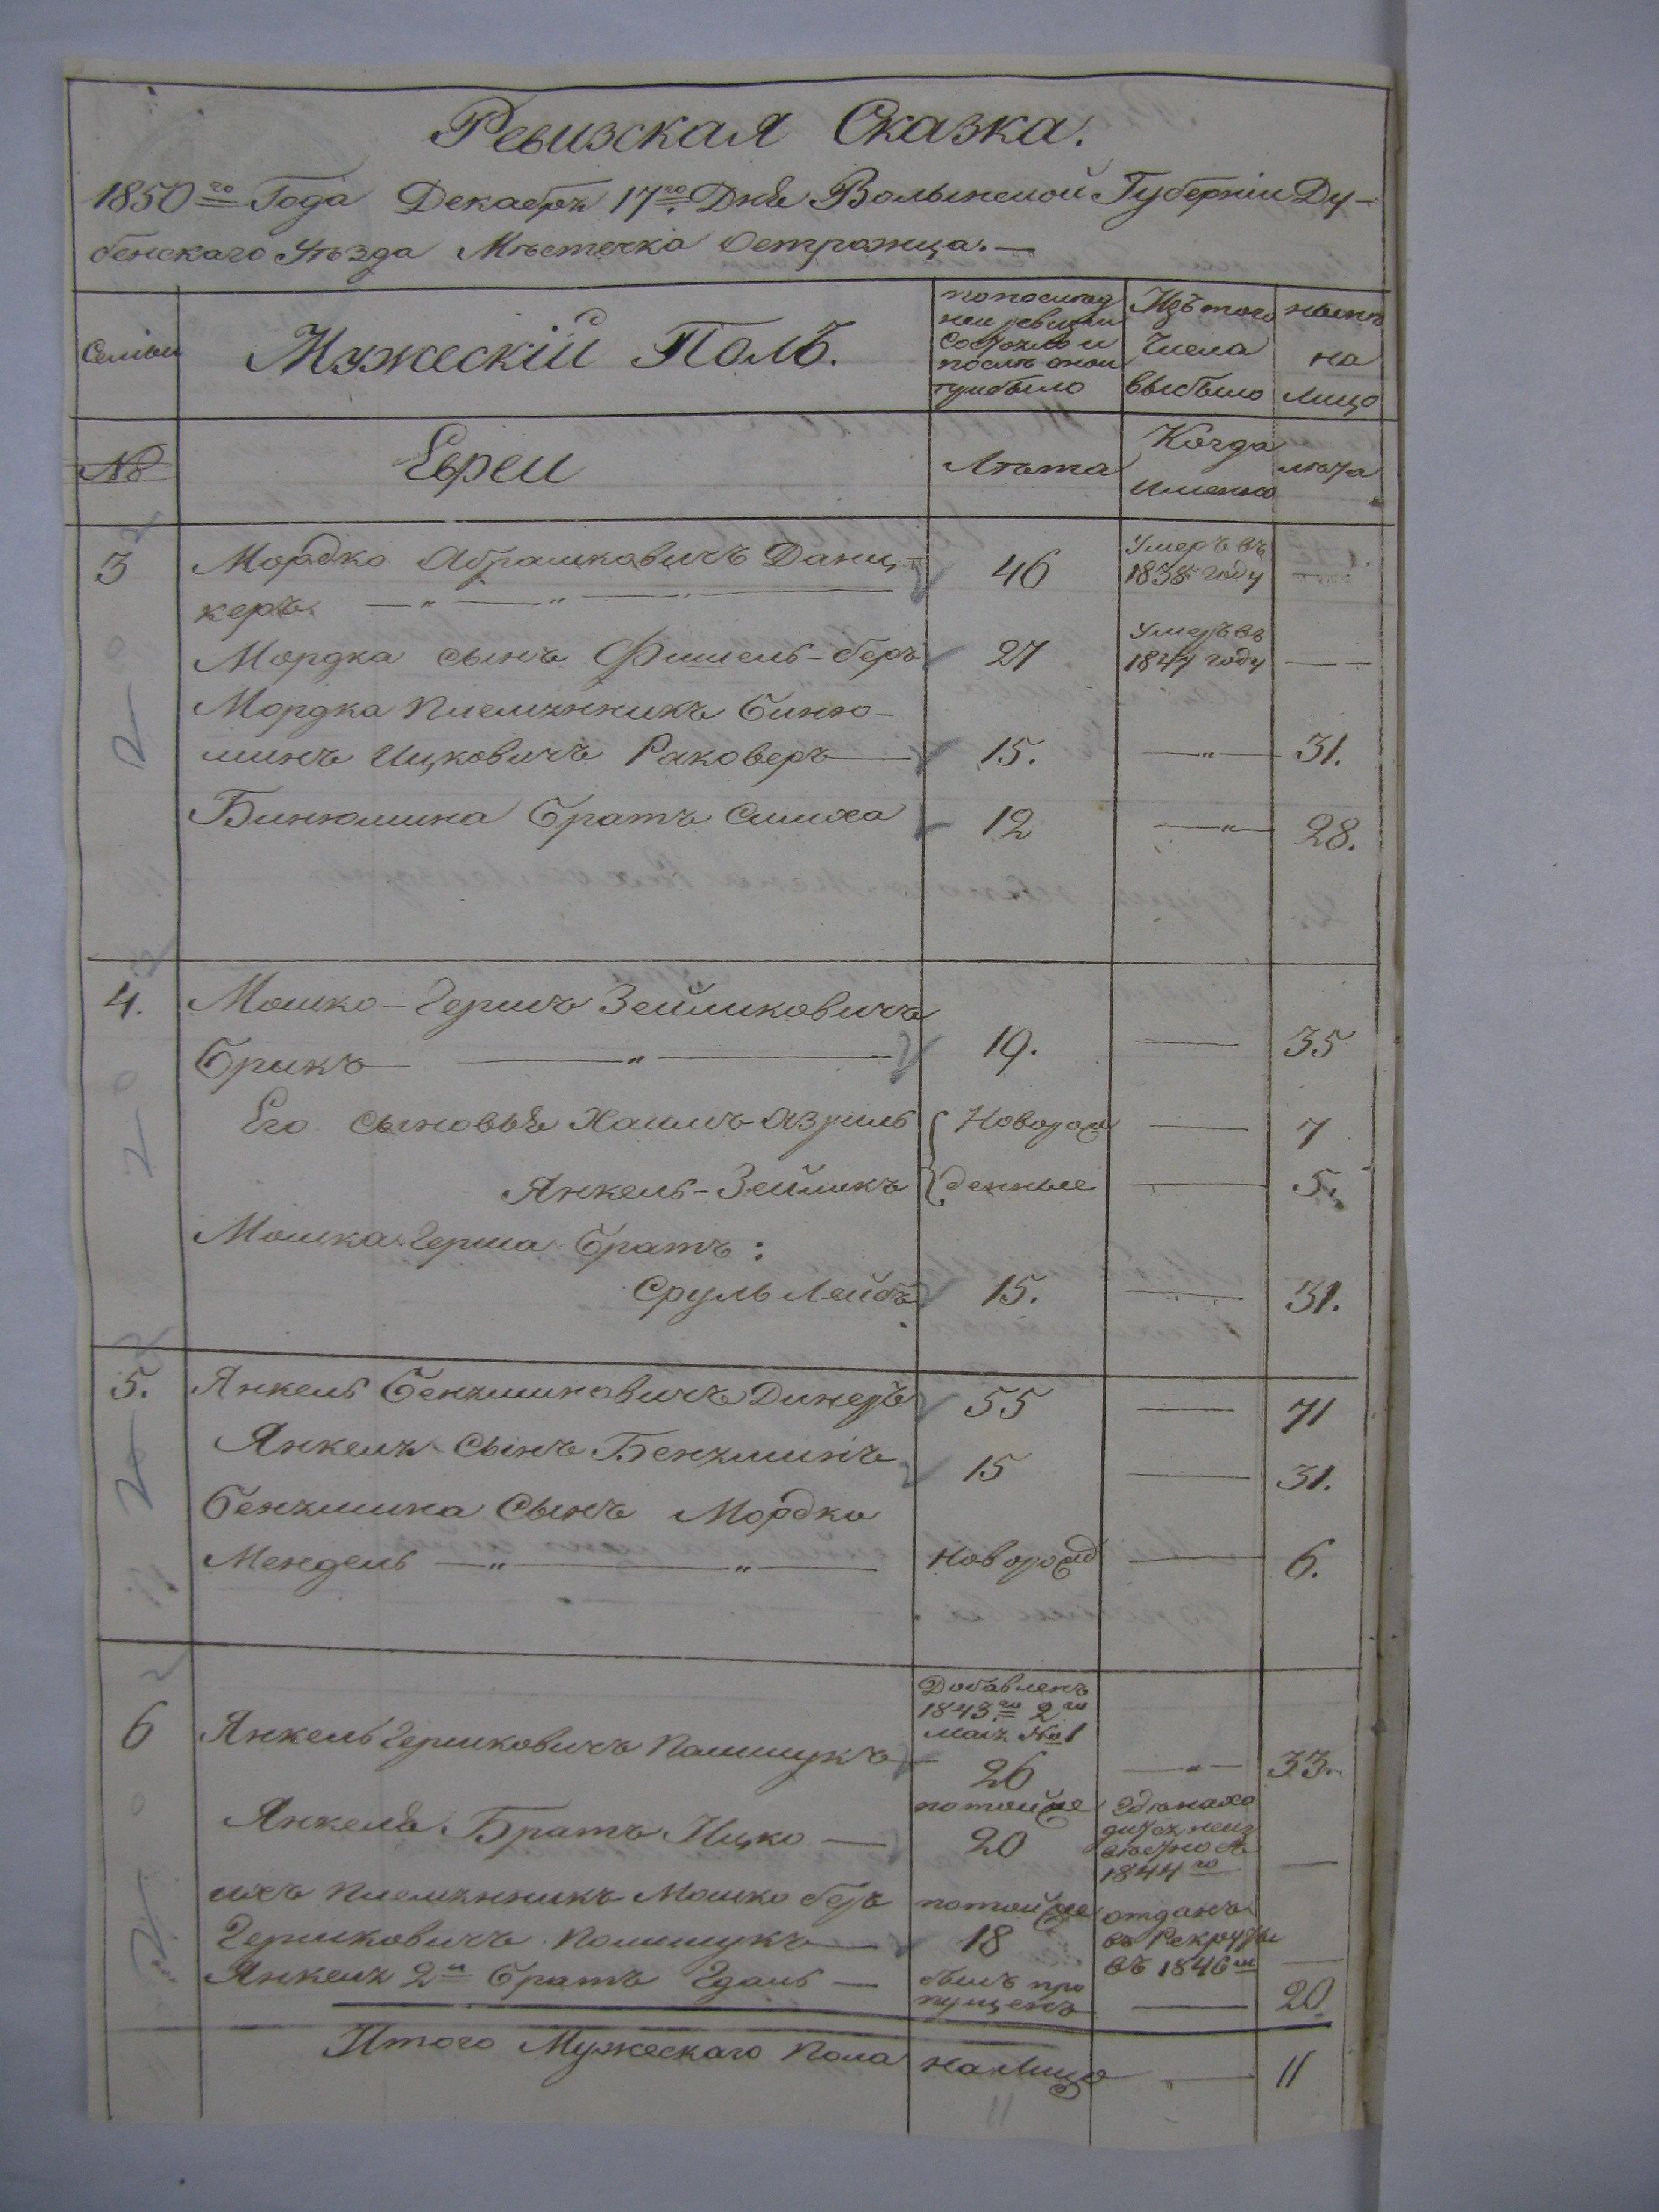 Ревизская Сказка.
1850го Года Декабря 17го Дня Волынской Губерніи Ду-
бенскаго Уѣзда Мѣстечка Острожца.—
Семьи
Мужескій Полъ.
по послѣд
ней ревизіи
состояло и
послѣ оной
прибыло
Изъ того
Числа
выбыло
нынѣ
на
Лицо
№
Евреи
Лѣта
Когда
именно
лѣта
3 Мордко Абрамковичъ Данц- 46 Умеръ въ 1838 году
керъ — " — " —
Мордка сынъ Фишель-беръ 27 Умеръ въ 1847 году —
Мордка племянникъ Биню-
минъ Ицковичъ Раковеръ — 15. — " — 31.
Бинюмина братъ Симха 12 — " — 28.
4. Мошко-Гершъ Зейликовичъ
Брикъ — " — 19. — 35
Его сыновья Хаимъ Азриль Новорож — 7
Янкель-Зейликъ денные — 5.
Мошка Герша братъ:
Сруль Лейбъ 15. — 31.
5. Янкель Бензминовичъ Динеръ 55 — 71
Янкеля сынъ Бенямингъ 15 — 31.
Бенямина Сынъ Мордко
Мендель — " — " — новорожд — 6.
Добавленъ
1843го 2го
мая №1
6 Янкель Гершковичъ Полищукъ 26 — " — 33.
Янкеля Братъ Ицко — по той же 20 гдѣ нахо
дится неиз
вѣстно съ
1844го —
ихъ племянникъ Мошко беръ по той же отданъ
Гершковичъ Полищукъ — 18 въ Рекруты
въ 1846м —
Янкеля 2й братъ Гдаль — былъ про
пущенъ — 20.
Итого Мужескаго пола на Лицо — 11
11